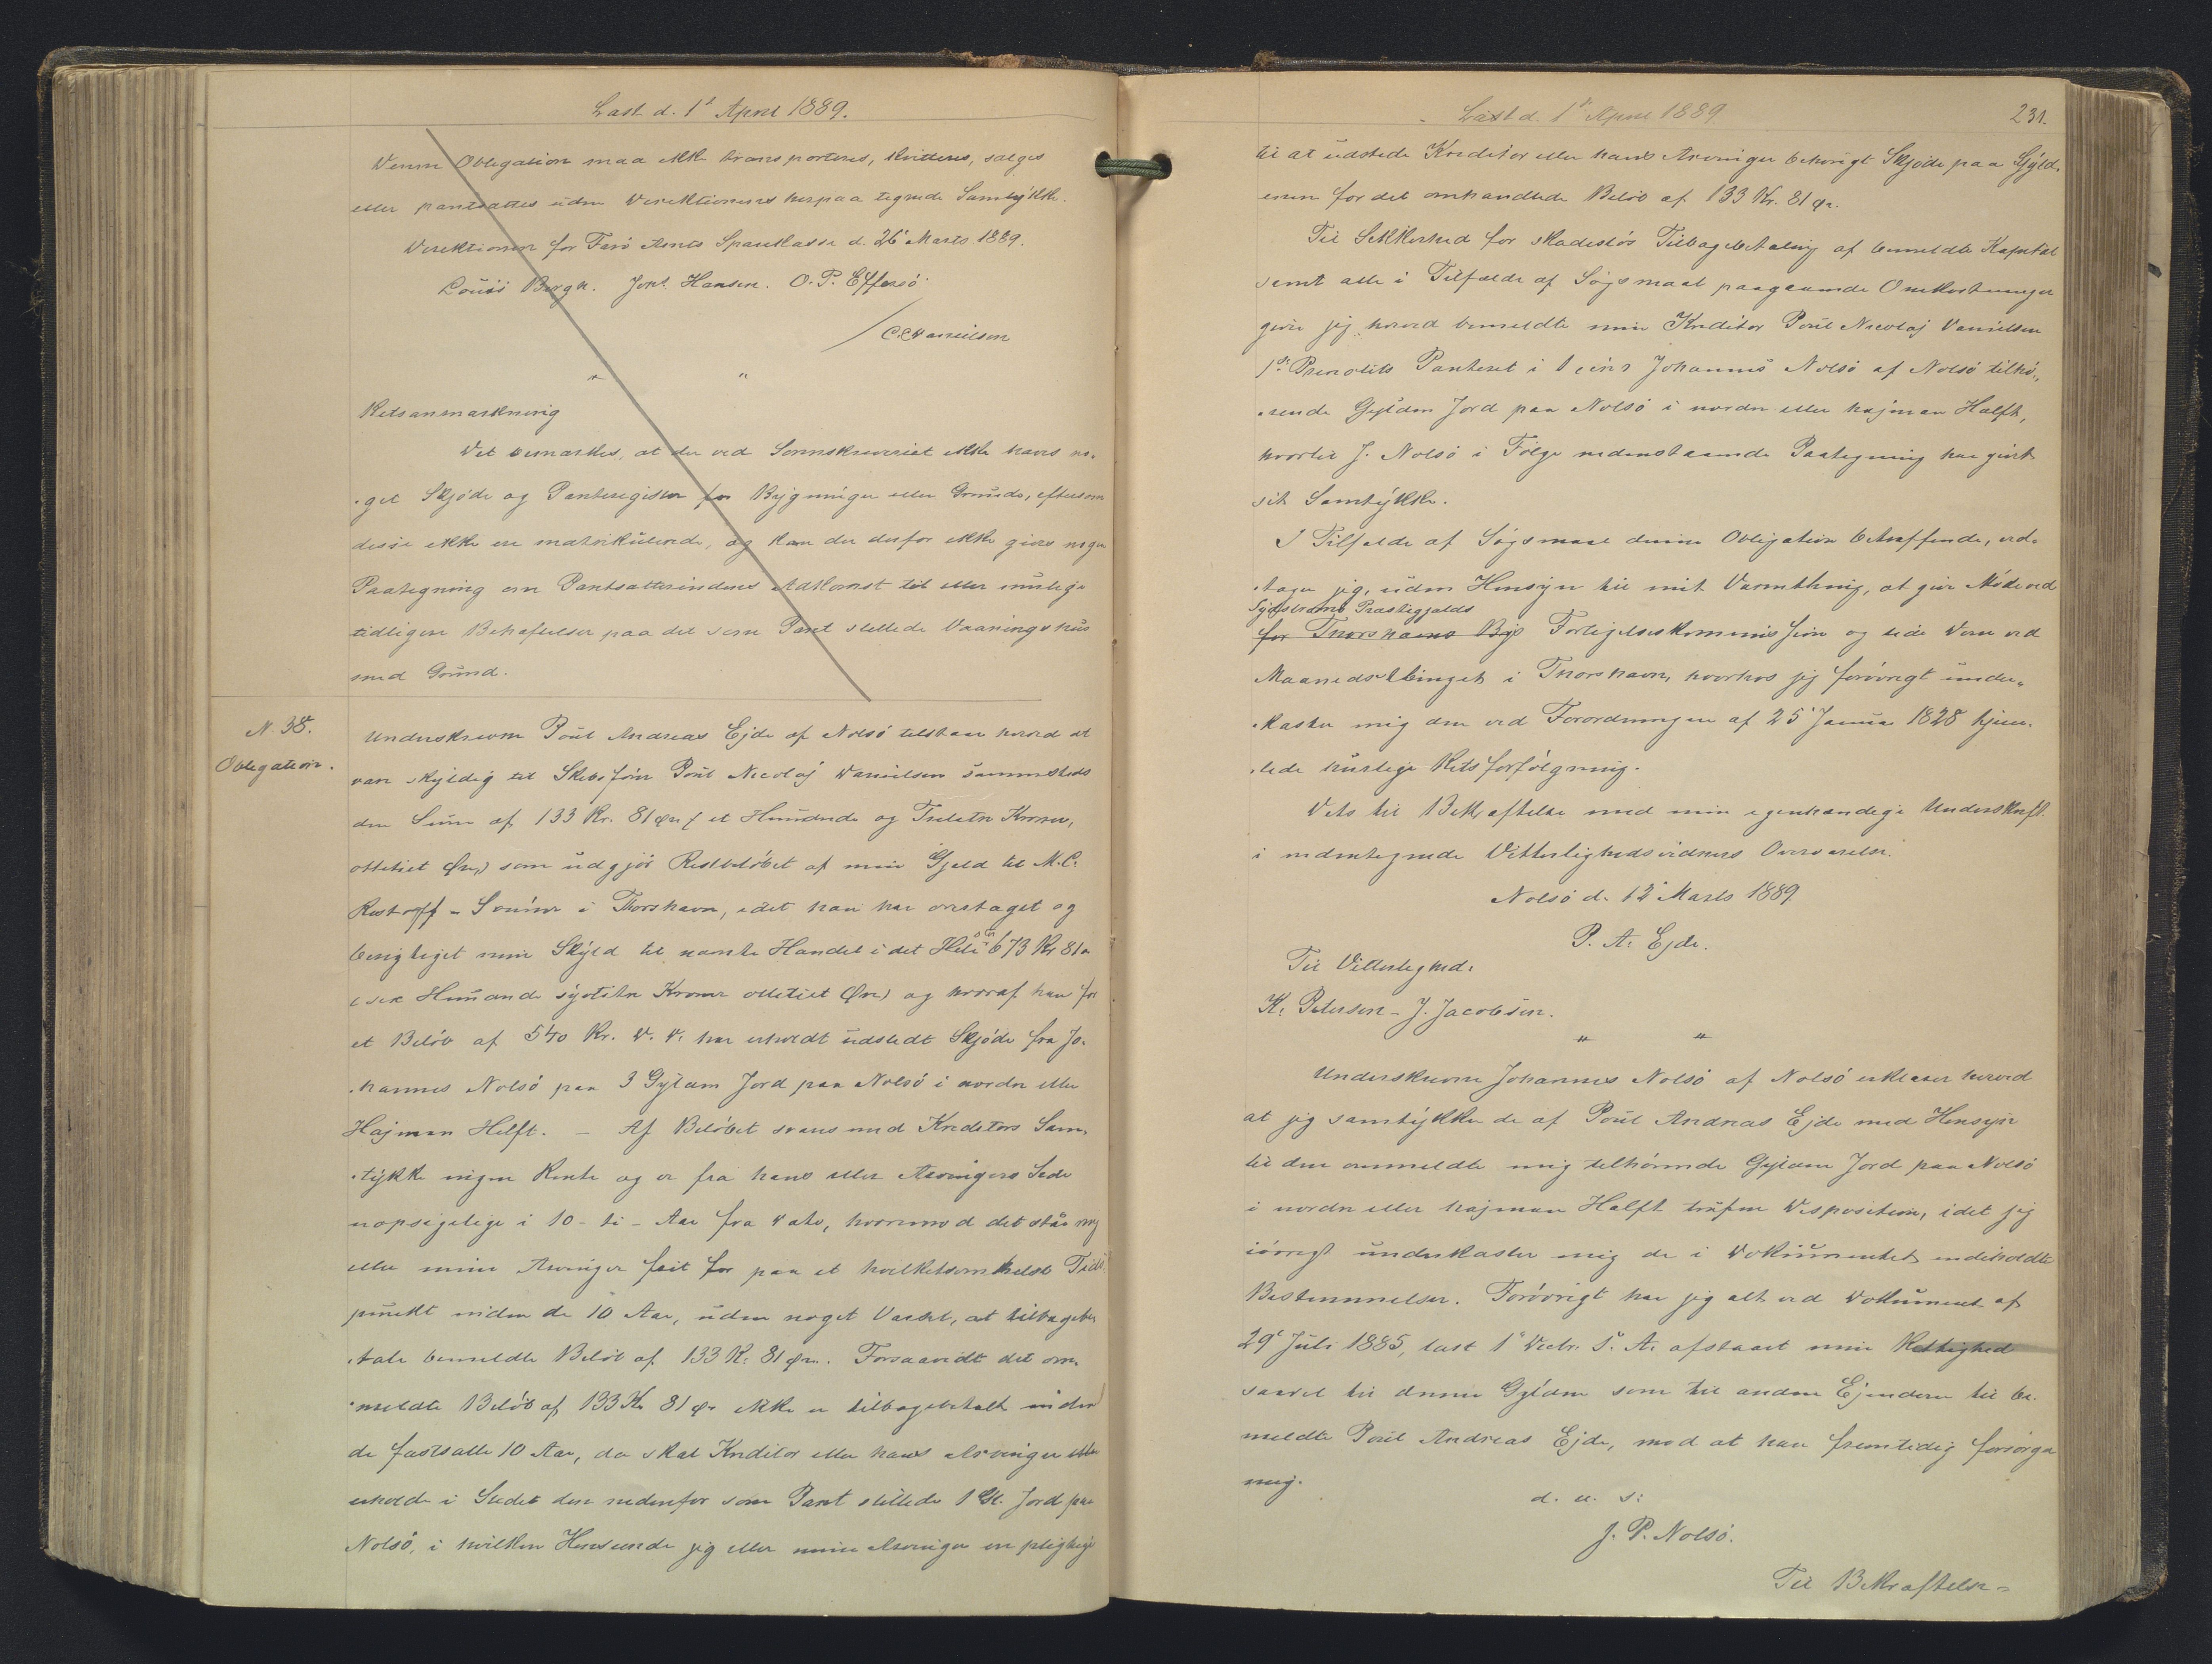 Læst d. 1ste April 1889.
Denne Obligation maa ikke transporteres, kvitteres, sælges
eller pantsættes uden Direktionens herpaa tegnede Samtykke.
Direktionen for Færø Amts Sparekasse d. 26' Marts 1889.
Louis Bergh. Johs. Hansen. O. P. Effersö
/ C. C. Danielsen
" "
Retsanmærkning
Det bemærkes, at der ved Sorenskriveriet ikke haves no-
get Skjöde og Panteregister for Bygninger eller Grunde, eftersom
disse ikke ere matrikulerede, og kan der derfor ikke gives nogen
Paategning om Pantsætterindens Adkomst til eller mulige
tidligere Behæftelser paa det som Pant stillede Vaaningshus
med Grund.
N. 38.
Obligation.
Underskrevne Poul Andreas Ejde af Nolsö tilstaar herved at
være skyldig til Skibsförer Poul Nicolaj Danielsen sammesteds
den Sum af 133 Kr. 81 Øre ( et Hundrede og Tretitre Kroner,
ottetiet Øre) som udgjör Restbelöbet af min Gjæld til M. C.
Restorff & Sönner i Thorshavn, idet han har overtaget og
berigtiget min Skyld til nævnte Handel i det Hele 673 Kr 81 Ø
(sex Hundrede sýotitre Kroner ottetiet Øre) og hvoraf han for
et Belöb af 540 Kr. D. D. har erholdt udstedt Skjöde fra Jo-
hannes Nolsö paa 3 Gylden Jord paa Nolsö i nordre eller
Hajman Helft. – Af Belöbet svares med Kreditors Sam-
tykke ingen Rente og er fra hans eller Arvingers Side
uopsigelige i 10 - ti - Aar fra Dato, hvorimod det står mig
eller mine Arvinger frit for paa et hvilketsomhelst Tids-
punkt inden de 10 Aar, uden noget Varsel, at tilbagebe-
tale bemeldte Belöb af 133 Kr. 81 Øre. Forsaavidt det om-
meldte Belöb af 133 Kr 81 Ør ikke er tilbagebetalt inden
de fastsatte 10 Aar, da skal Kreditor eller hans Arvinger
erholde i Stedet den nedenfor som Pant stillede 1 Gl. Jord paa
Nolsö, i hvilken Henseende jeg eller mine Arvinger ere pligtige
Læst d. 1ste April 1889
231.
til at udstede Kreditor eller hans Arvinger behörigt Skjöde paa Gyld-
enen for det omhandlede Belöb af 133 Kr. 81 Ør.
Til Sikkerhed for skadeslös Tilbagebetaling af bemeldte Kapital
samt alle i Tilfælde af Sögsmaal paagaaende Omkostninger
giver jeg herved bemeldte min Kreditor Poul Nicolaj Danielsen
1ste Prioritets Panteret i 1 een Johannes Nolsö af Nolsö tilhö-
rende Gylden Jord paa Nolsö i nordre eller hajman Halft,
hvortil J. Nolsö i Fölge nedenstaaende Paategning har givet
sit Samtykke.
I Tilfælde af Sögsmaal denne Obligation betræffende, ved-
tager jeg, uden Hensyn til mit Værnething, at give Möde ved
Sydstrømö Præstegjælds
for Thorshavns Bys Forligelseskommission og lide Dom ved
Maanedsthinget i Thorshavn, hvorhos jeg forövrigt under-
kaster mig den ved Forordningen af 25' Januar 1828 hjem-
lede hurtige Retsforfölgning.
Dets til Bekræftelse med min egenhændige Underskrift
i nedentegnede Vitterlighedsvidners Overværelse.
Nolsö d. 12' Marts 1889
P. A. Ejde.
Til Vitterlighed:
K. Petersen - J. Jacobsen.
" "
Underskrevne Johannes Nolsö af Nolsö erklærer herved
at jeg samtykker de af Poul Andreas Ejde med Hensyn
til den ommeldte mig tilhörende Gylden Jord paa Nolsö
i nordre eller hajman Halft trufne Disposition, idet jeg
iövrigt underkaster mig de i Dokumentet indeholdte
Bestemmelser. Forövrigt har jeg alt ved Dokument af
29' Juli 1885, læst 1' Decbr. s. A. afstaaet min Rettighed
saavel til denne Gylden som til anden Ejendom til be-
meldte Poul Andreas Ejde, mod at han fremtidig forsörger
mig.
d. u. s:
J. P. Nolsö.
Til Bekræftelse =